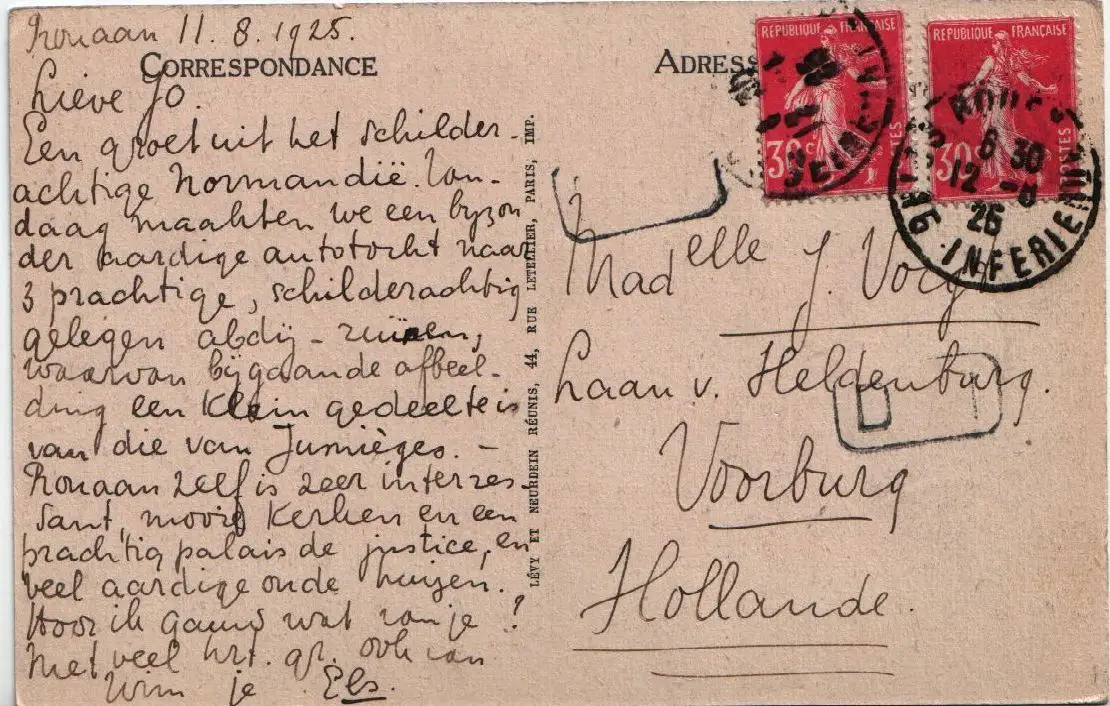 Rouaan 11.8.1925.
CORRESPONDANCE
Lieve Jo.
Een groet uit het schilder-
achtige Normandië. Van-
daag maakten we een byzon
der aardige autotocht naar
3 prachtige, schilderachtig
gelegen abdij-ruïnen,
waarvan bijgaande afbeel-
ding een klein gedeelte is
van die van Jumièges. -
Rouaan zelf is zeer interres
sant, mooie kerken en een
prachtig palais de justice, en
veel aardige oude huizen.
Hoor ik gauw wat van je?
Met veel hrt. gr. ook van
Wim je Els.
LÉVY ET NEURDEIN RÉUNIS, 44, RUE LETELLIER, PARIS, IMP.
ADRESS
RÉPUBLIQUE FRANÇAISE
30c
POSTES
RÉPUBLIQUE FRANÇAISE
30c
POSTES
SEINE
6 30
12 - 8
25
INFERIEURE
Madelle J.
Laan v. Heldenburg.
Voorburg
Hollande.